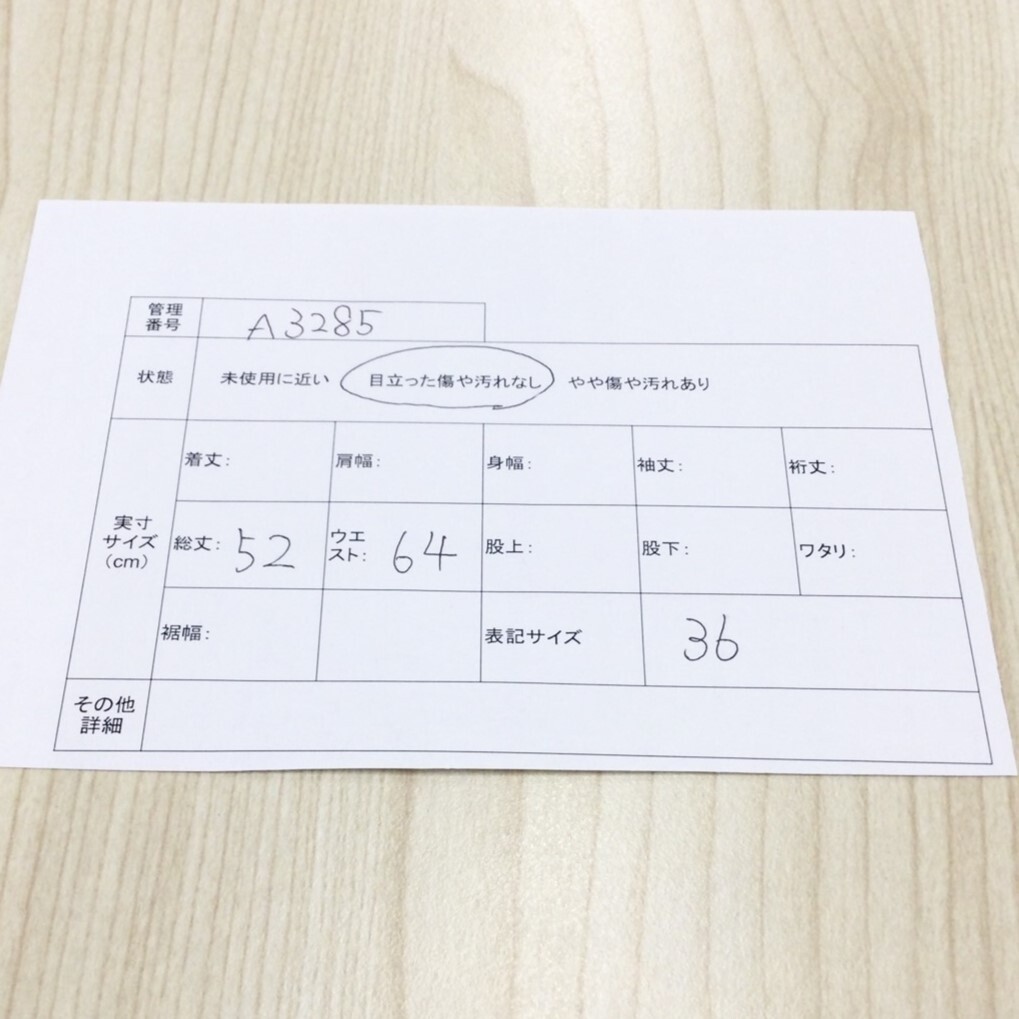 管理
番号 A3285
状態 未使用に近い 目立った傷や汚れなし やや傷や汚れあり
実寸
サイズ
(cm)
着丈: 肩幅: 身幅: 袖丈: 裄丈:
総丈: 52 ウエ
スト: 64 股上: 股下: ワタリ:
裾幅: 表記サイズ 36
その他
詳細